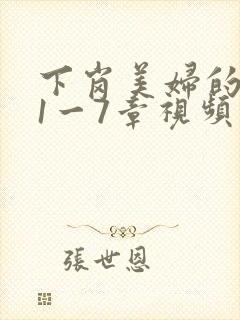 下岗美婦的
1一7章視頻
張世恩